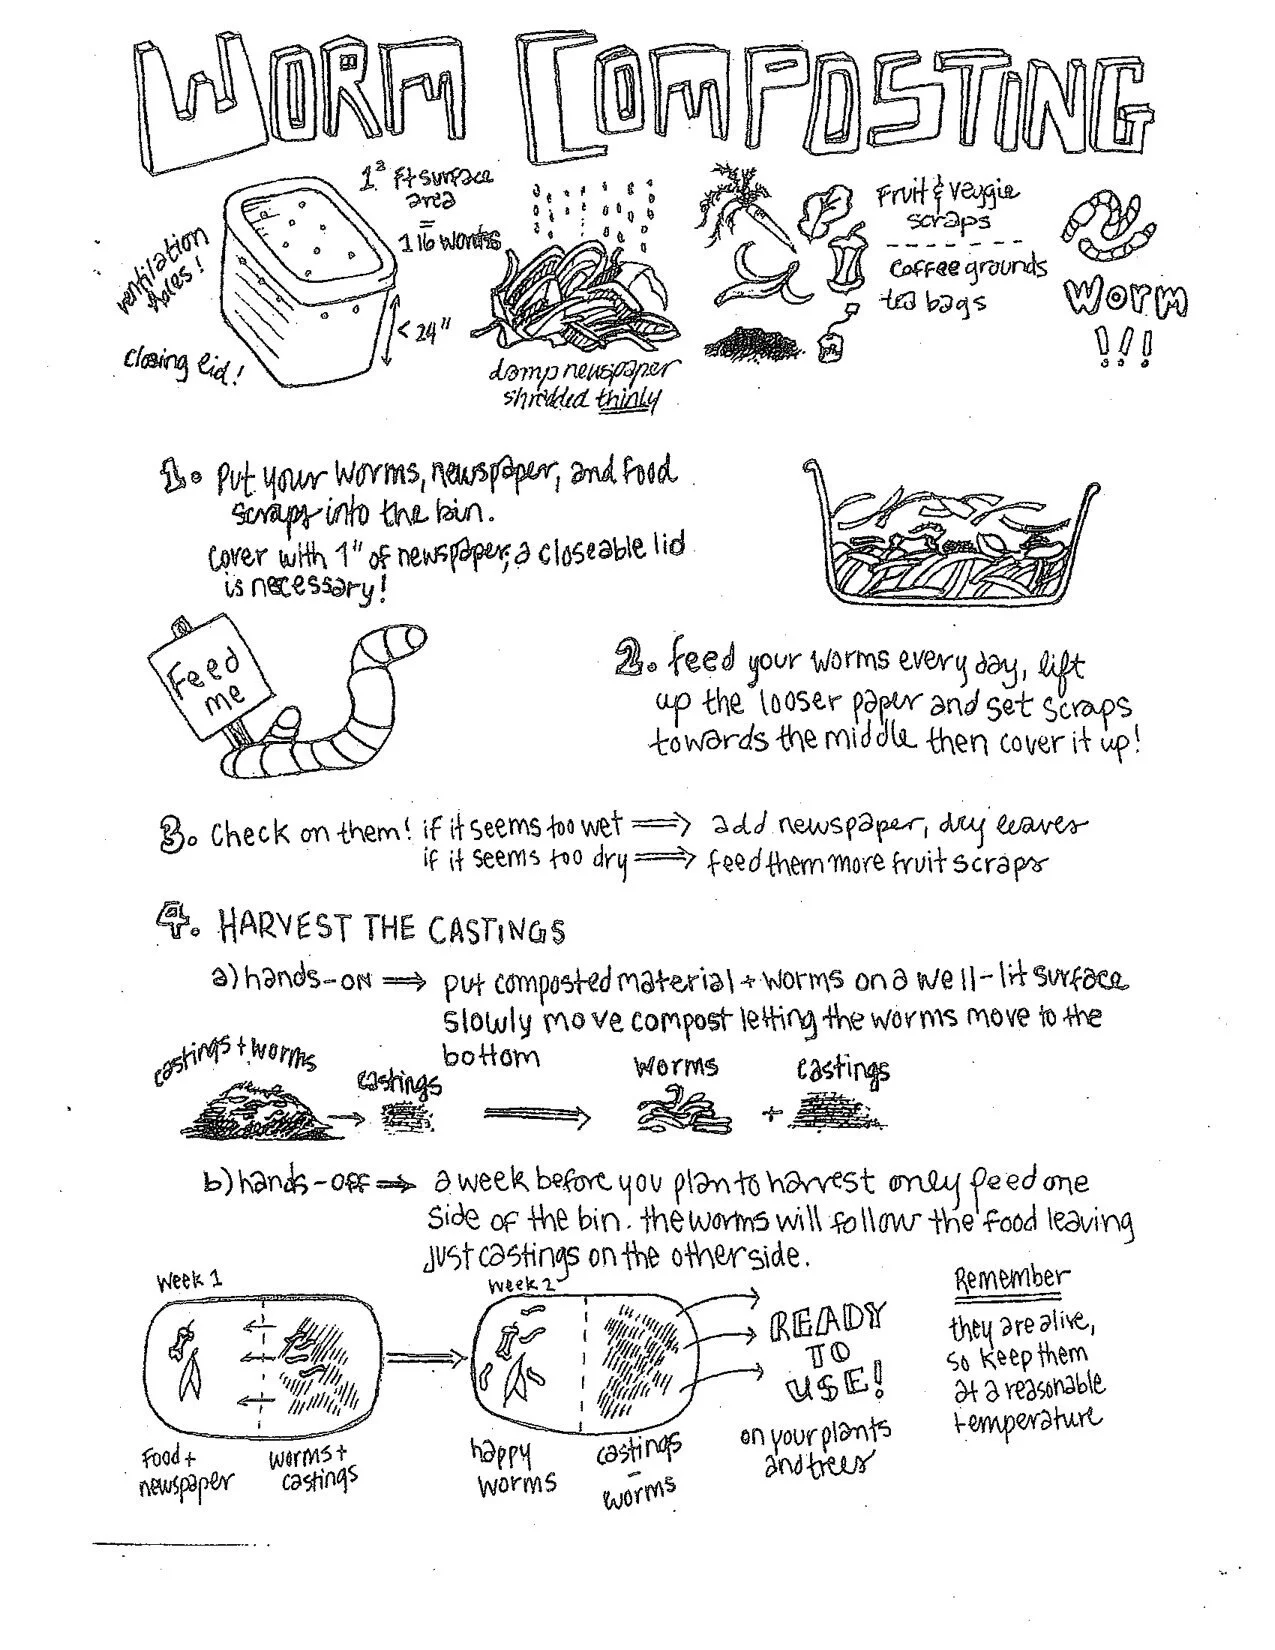 WORM COMPOSTING
1² ft surface
area
=
1 lb worms
ventilation
holes!
closing lid!
< 24"
damp newspaper
shredded thinly
Fruit & Veggie
scraps
coffee grounds
tea bags
WORM
!!!
1. Put your worms, newspaper, and food
scraps into the bin.
cover with 1" of newspaper, a closeable lid
is necessary!
Feed
me
2. feed your worms every day, lift
up the looser paper and set scraps
towards the middle then cover it up!
3. Check on them! if it seems too wet ⇒ add newspaper, dry leaves
if it seems too dry ⇒ feed them more fruit scraps
4. HARVEST THE CASTINGS
a) hands-on ⇒ put composted material + worms on a well-lit surface
slowly move compost letting the worms move to the
bottom
castings + worms
→
castings
→
worms
+
castings
b) hands-off ⇒ a week before you plan to harvest only feed one
side of the bin. the worms will follow the food leaving
just castings on the other side.
Week 1
Food +
newspaper
worms +
castings
Week 2
happy
worms
castings
–
worms
READY
TO
USE!
on your plants
and trees
Remember
they are alive,
so keep them
at a reasonable
temperature